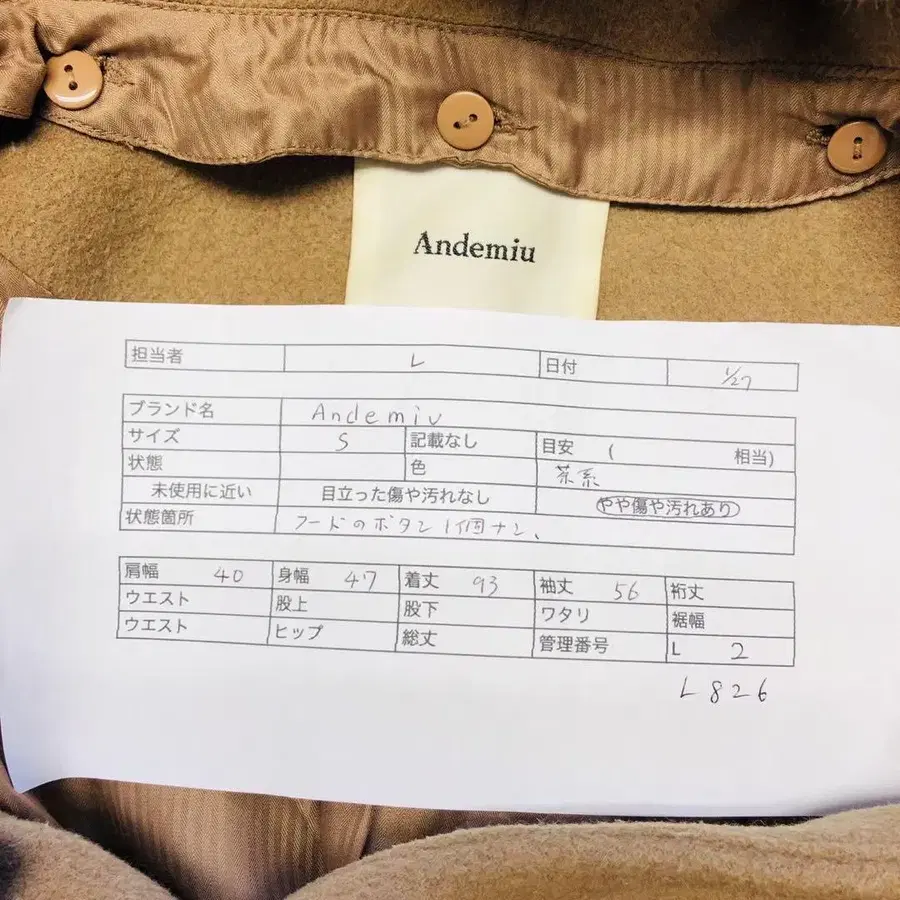 Andemiu
担当者 L 日付 1/27
ブランド名 Andemiu
サイズ S 記載なし 目安 ( 相当)
状態 色 茶系
未使用に近い 目立った傷や汚れなし やや傷や汚れあり
状態箇所 フードのボタン1個ナシ、
肩幅 40 身幅 47 着丈 93 袖丈 56 裄丈
ウエスト 股上 股下 ワタリ 裾幅
ウエスト ヒップ 総丈 管理番号 L 2
L826